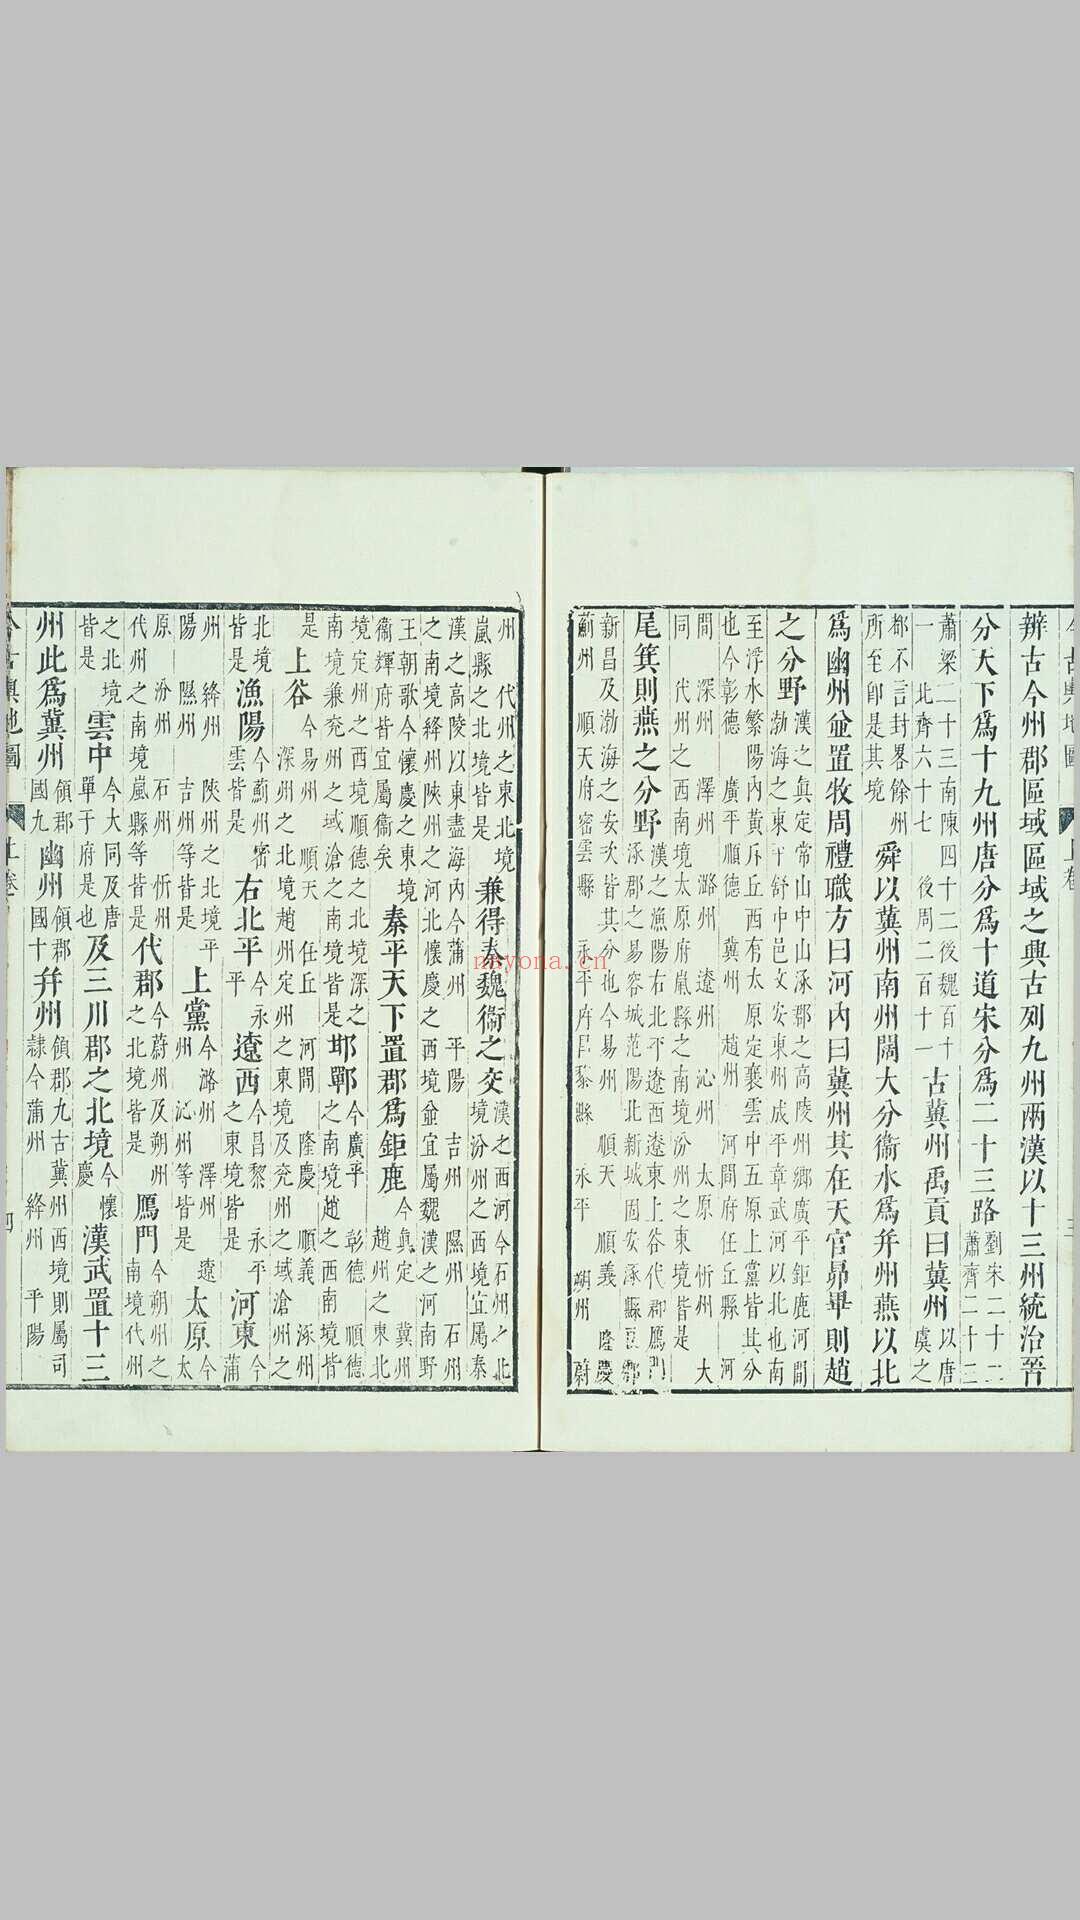 辨古今州郡區域區域之興古列九州兩漢以十三州統治晉
分天下爲十九州唐分爲十道宋分爲二十三路劉宋二十二蕭齊二十二
蕭梁二十三南陳四十二後魏百十一北齊六十七後周二百十一古冀州禹貢曰冀州以唐虞之
都不言封畧餘州所至卽是其境舜以冀州南州闊大分衞水爲并州燕以北
爲幽州並置牧周禮職方曰河內曰冀州其在天官昴畢則趙
之分野漢之眞定常山中山涿郡之高陵州鄉廣平鉅鹿河間
渤海之東平舒中邑文安東州成平章武河以北也南
至浮水繁陽內黃斥丘西有太原定襄雲中五原上黨皆其分
也今彰德 廣平順德 冀州 趙州 河間府任丘縣 河
間 深州 潞州 澤州 遼州 沁州 太原 忻州 大
同 代州之西南境太原府嵐縣之南境汾州之東境皆是
尾箕則燕之分野漢之漁陽右北平遼西遼東上谷代郡鴈門
涿郡之易容城范陽北新城固安涿縣良鄉
新昌及渤海之安次皆其分也今易州 順天 順義 隆慶
薊州 順天府密雲縣 永平府昌黎縣 永平 朔州 蔚
州 代州之東北境嵐縣之北境皆是兼得秦魏衞之交漢之西河今石州之北境汾州之西境宜屬秦
漢之高陵以東盡海內今蒲州 平陽 吉州 隰州 石州
之南境絳州陝州之河北懷慶之西境並宜屬魏漢之河南野
王朝歌今懷慶之東境
衞輝府皆宜屬衞矣秦平天下置郡爲鉅鹿今眞定 冀州 趙州之東北
境定州之西境順德之北境深之
南境兼兖州之域滄之南境皆是邯鄲今廣平 彰德 順德之南境趙之西南境皆
是上谷今易州 順天 任丘 河間 隆慶 順義 涿州
深州之北境趙州定州之東境及兖州之域滄州之
北境皆是漁陽今薊州密雲皆是右北平今永平遼西今昌黎 永平之東境皆是河東今蒲
州 絳州 陝州之北境平
陽 隰州 吉州等皆是上黨今潞州 澤州 遼州 沁州等皆是太原今太
原 汾州 石州 忻州
代州之南境嵐縣等皆是代郡今蔚州及朔州之北境皆是鴈門今朔州之南境代州
之北境皆是雲中今大同及唐單于府是也及三川郡之北境今懷慶漢武置十三
州此爲冀州領郡國九幽州領郡國十并州領郡九古冀州西境則屬司隷今蒲州 絳州 平陽
今古輿地圖 上卷 三
今古輿地圖 上卷 四
nayona.cn